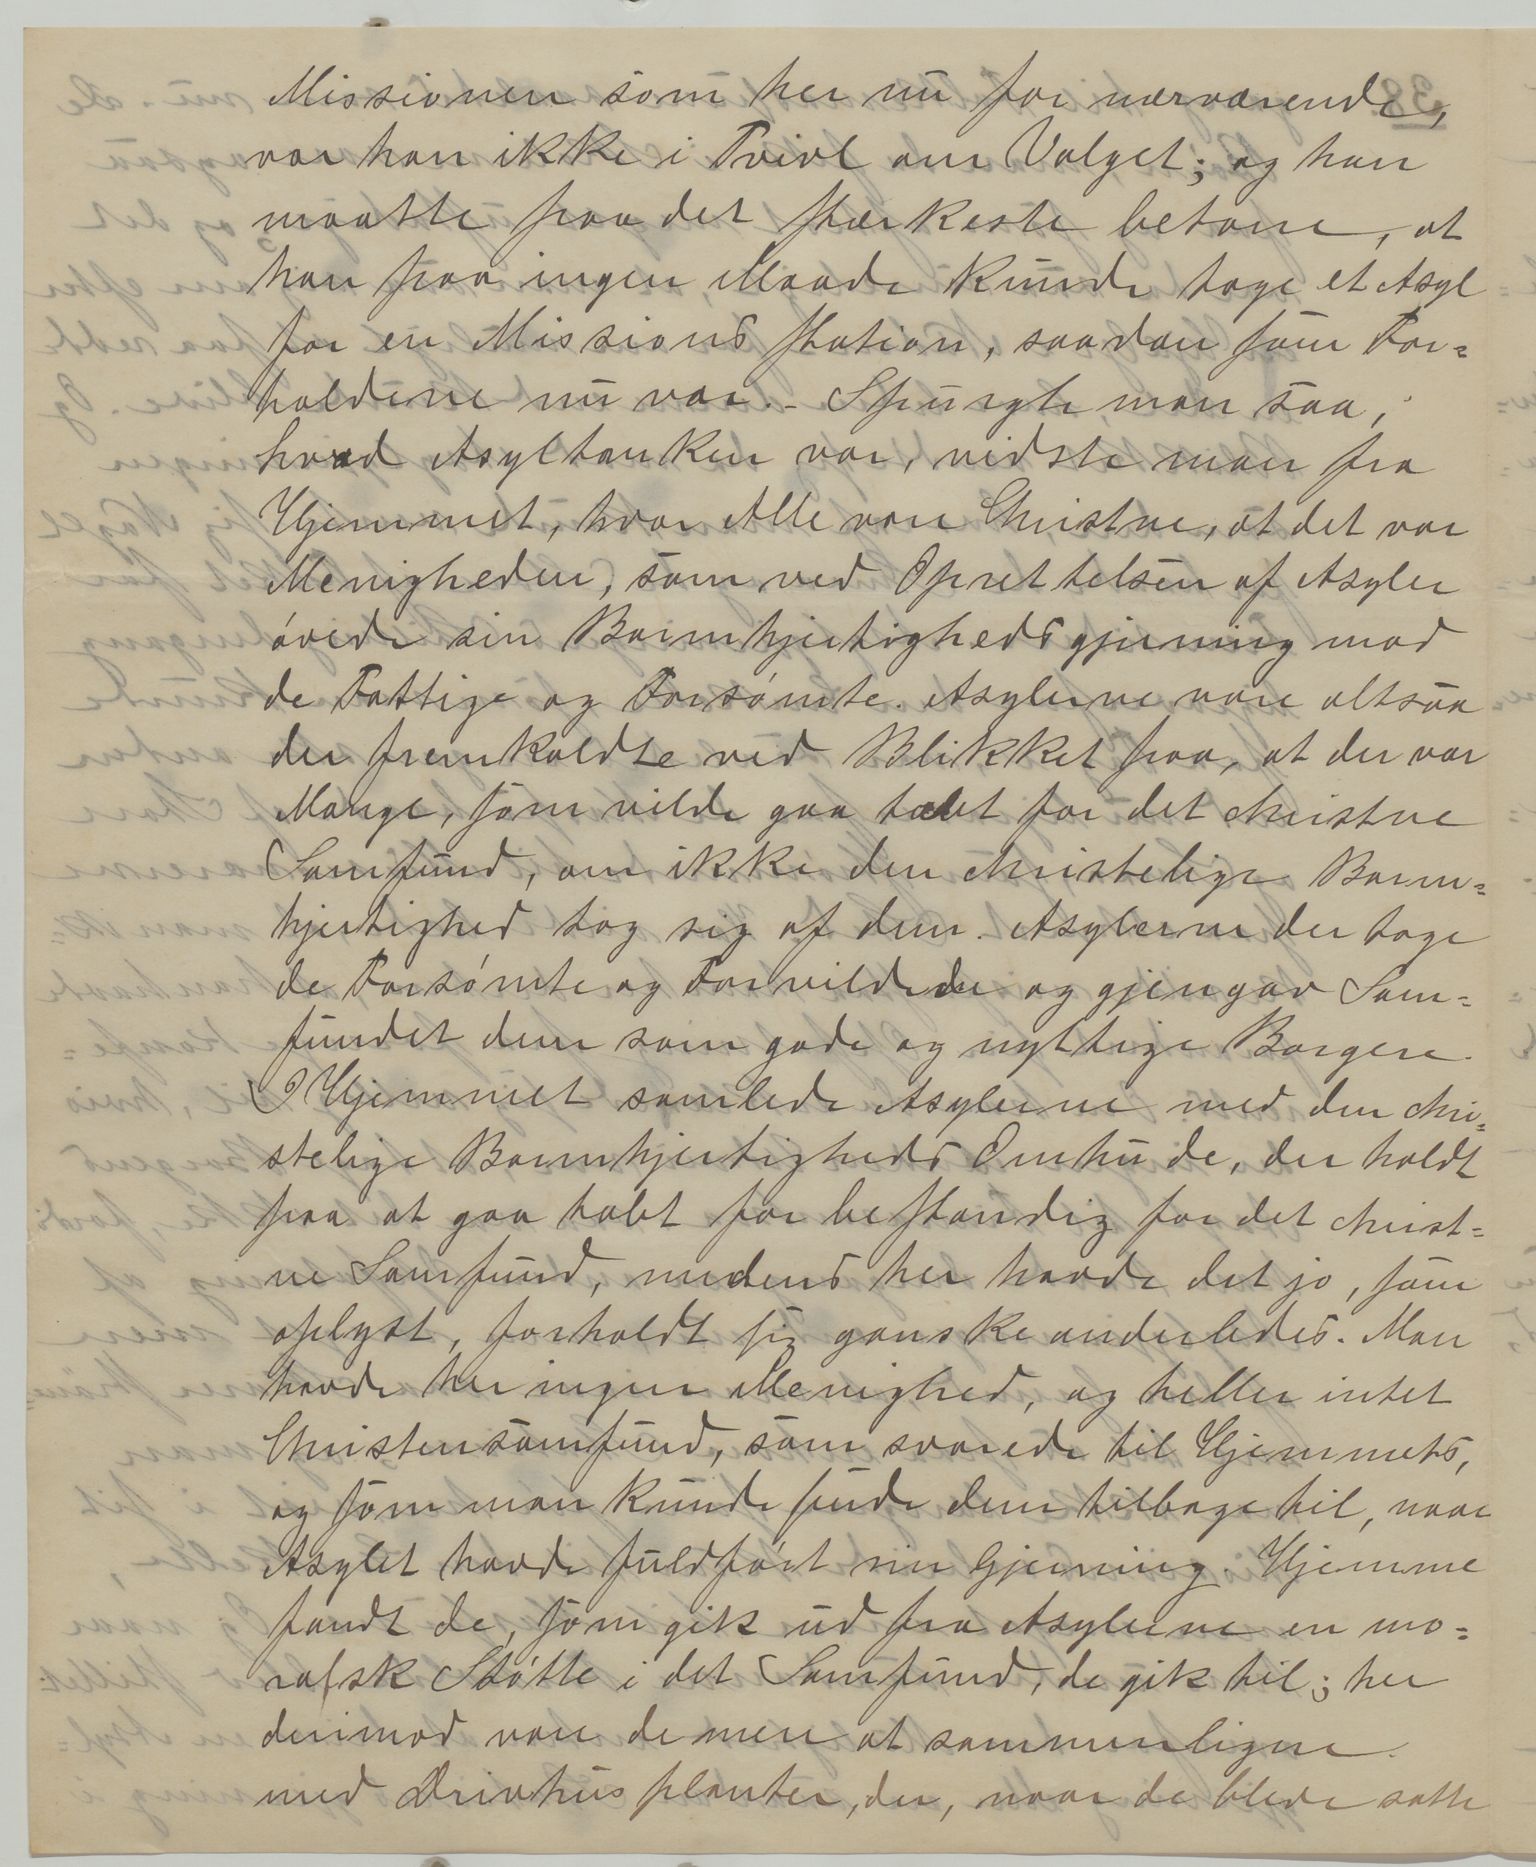 Missionen som her nu for nærværende,
var han ikke i Tvivl om Valget; og han
maatte paa det stærkeste betone, at
han paa ingen Maade kunde tage et Asyl
for en Missionsstation, saadan som For=
holdene nu var. - Spurgte man saa,
hvad Asyltanken var, vidste man fra
Hjemmet, hvor Alle vare Christne, at det var
Menigheden, som ved Oprettelsen af Asyler
óvede sin Barmhjertighedsgjerning mod
de Fattige og Forsómte. Asylerne vare altsaa
der fremkaldte ved Blikket paa, at der var
Mange, som vilde gaa tabt for det christne
Samfund, om ikke den christelige Barm=
hjertighed tog sig af dem. Asylerne der toge
de Forsómte og Forvildede og gjengav Sam=
fundet dem som gode og nyttige Borgere.
I Hjemmet samlede Asylerne med den chri=
stelige Barmhjertigheds Omhu de, der holdt
paa at gaa tabt for bestandig for det christ=
ne Samfund, medens her havde det jo, som
oplyst, forholdt sig ganske anderledes. Man
havde her ingen Menighed, og heller intet
Christensamfund, som svarede til Hjemmets,
og som man kunde sende dem tilbage til, naar
Asylet havde fuldfórt sin Gjerning. Hjemme
fandt de, som gik ud fra Asylerne en mo=
ralsk Stótte i det Samfund, de gik til; her
derimod vare de mere at sammenligne
med Drivhusplanter, der, naar de bleve satte